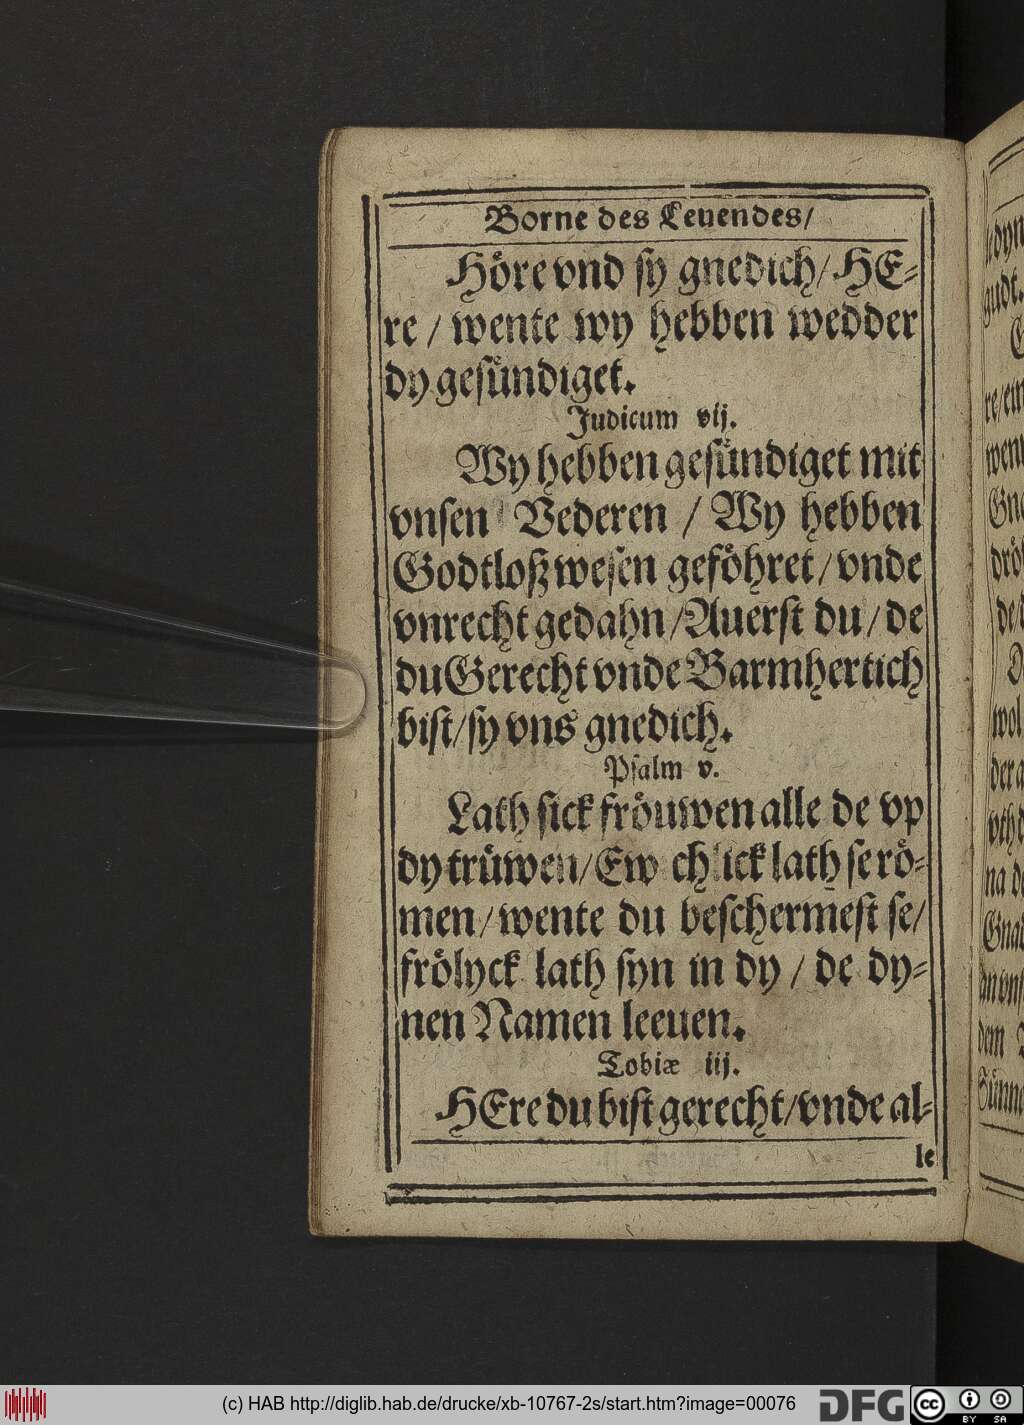 Borne des Leuendes/
Höre vnd sy gnedich/ HE-
re / wente wy hebben wedder
dy gesündiget.
Judicum vij.
Wy hebben gesündiget mit
vnsen Vederen / Wy hebben
Godtloß wesen geföhret/ vnde
vnrecht gedahn/ Auerst du/ de
du Gerecht vnde Barmhertich
bist/ sy vns gnedich.
Psalm v.
Lath sick fröuwen alle de vp
dy trüwen/ Ew chlick lath se rö-
men/ wente du beschermest se/
frölyck lath syn in dy / de dy-
nen Namen leeuen.
Tobiæ iij.
HEre du bist gerecht/ vnde al-
le
(c) HAB http://diglib.hab.de/drucke/xb-10767-2s/start.htm?image=00076
DFG
cc BY SA